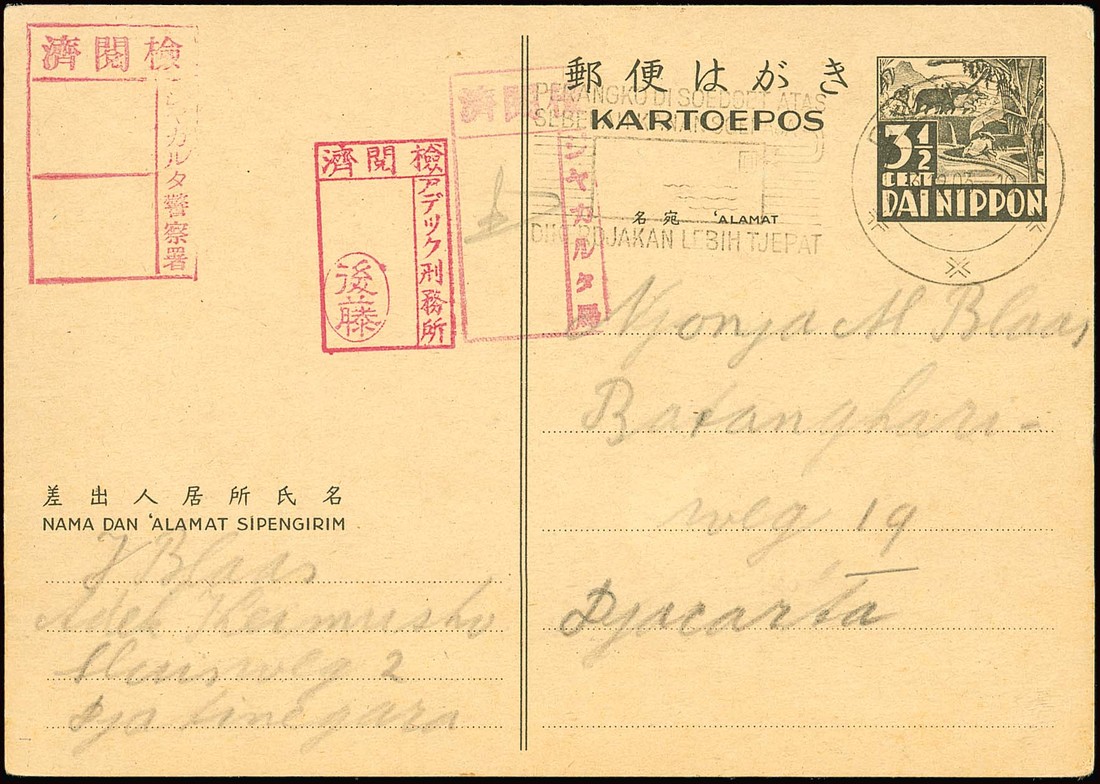 檢閲濟
ジャカルタ警察署
檢閲濟
アデック刑務所
後藤
檢閲濟
ジャカルタ局
郵便はがき
KARTOEPOS
PERANGKO DI SOEDOET ATAS
名宛 'ALAMAT
DIKERDJAKAN LEBIH TJEPAT
3½
CENT
DAI NIPPON
Njonja M Blaas
Batanghari-
weg 19
Djacarta
差出人居所氏名
NAMA DAN 'ALAMAT SIPENGIRIM
J Blaas
Adek Keimusho
weg 2
Djatinegara